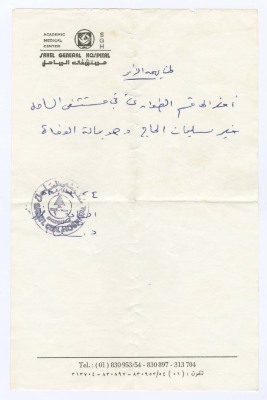 ACADEMIC MEDICAL CENTER
S G H
SAHEL GENERAL HOSPITAL
مستشفى الساحل
لمن يهمه الأمر
أحضر الى قسم الطوارئ في مستشفى الساحل
خير سليمان الحاج وهو بحالة الوفاة
Tel. : (01) 830 953/54 - 830 897 - 313 704
تلفون : (٠١) ٨٣٠٩٥٣/٥٤ - ٨٣٠٨٩٧ - ٣١٣٧٠٤